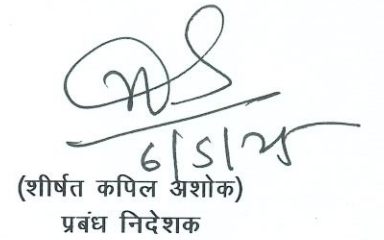 6/5/25
(शीर्षत कपिल अशोक)
प्रबंध निदेशक